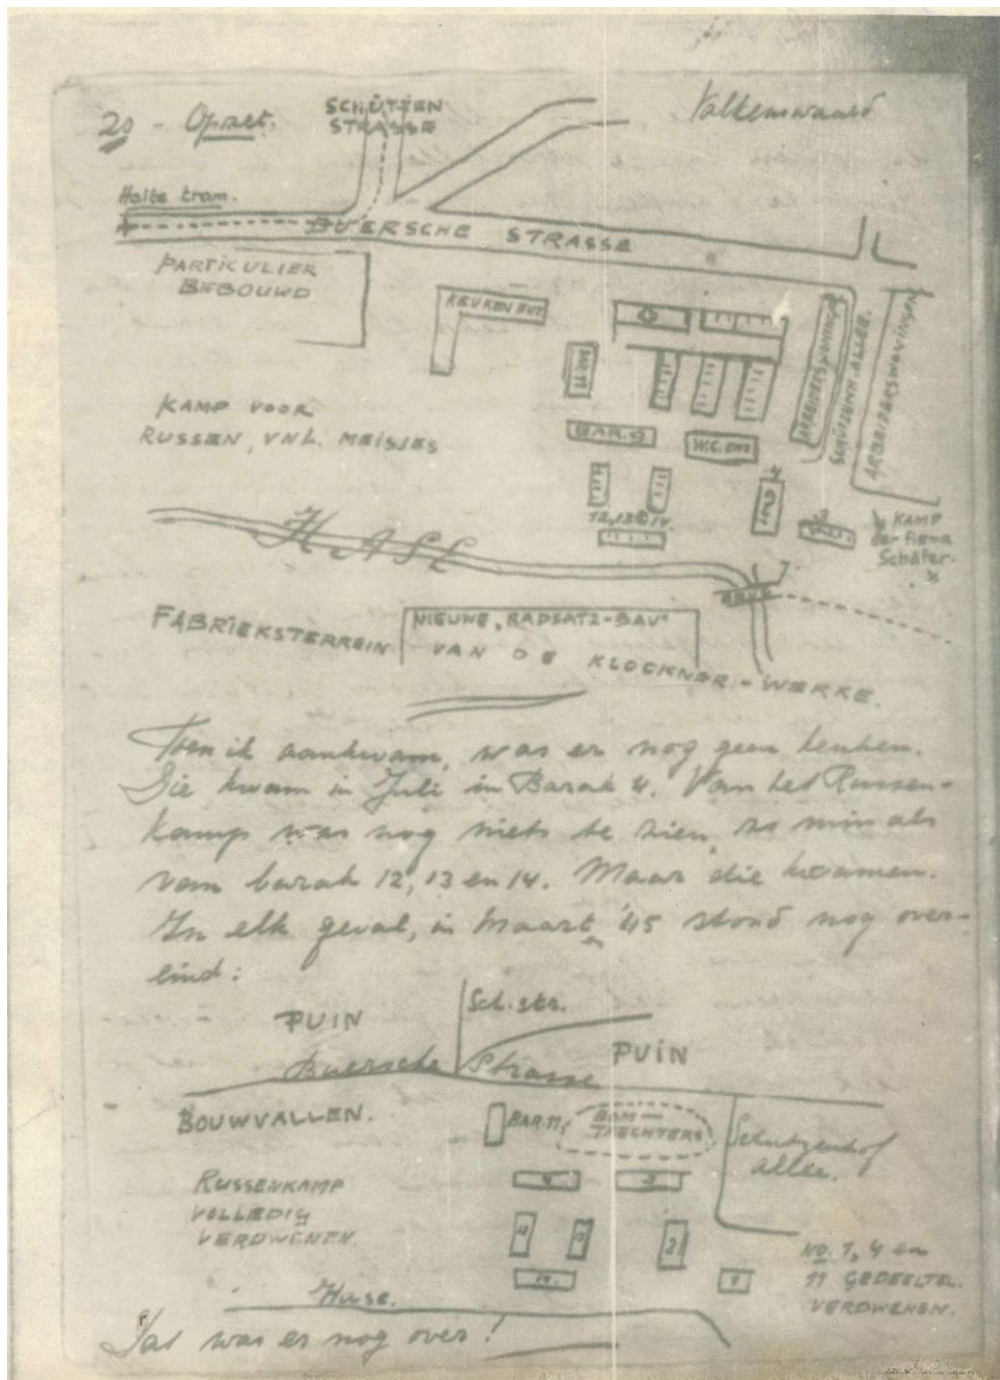 20 - Opzet.
SCHÜTZEN
STRASSE
Valkenswaard
Halte tram.
BUERSCHE STRASSE
PARTICULIER
BEBOUWD
KEUKEN ENZ
BAR.11
ARBEIDERSWONINGEN
SCHÜTZENH. ALLEE.
ARBEIDERSWONINGEN
KAMP VOOR
RUSSEN, VNL. MEISJES
BAR. 9
W.C. ENZ
4
12, 13 en 14.
KAMP
der firma
Schäfer.
HASE
BRUG
FABRIEKSTERREIN
NIEUWE „RADSATZ-BAU"
VAN DE KLOCKNER-WERKE.
Toen ik aankwam, was er nog geen keuken.
Die kwam in Juli in Barak 4. Van het Russen-
kamp was nog niets te zien, zo min als
van barak 12, 13 en 14. Maar die kwamen.
In elk geval, in Maart '45 stond nog over-
eind:
PUIN
Sch. str.
PUIN
Buersche Strasse
BOUWVALLEN.
BAR.11,
BOM-
TRECHTERS
Schutzenhof
allee.
RUSSENKAMP
VOLLEDIG
VERDWENEN.
2
14.
No. 1, 4 en
11 GEDEELTEL.
VERDWENEN.
Hase.
Dat was er nog over!